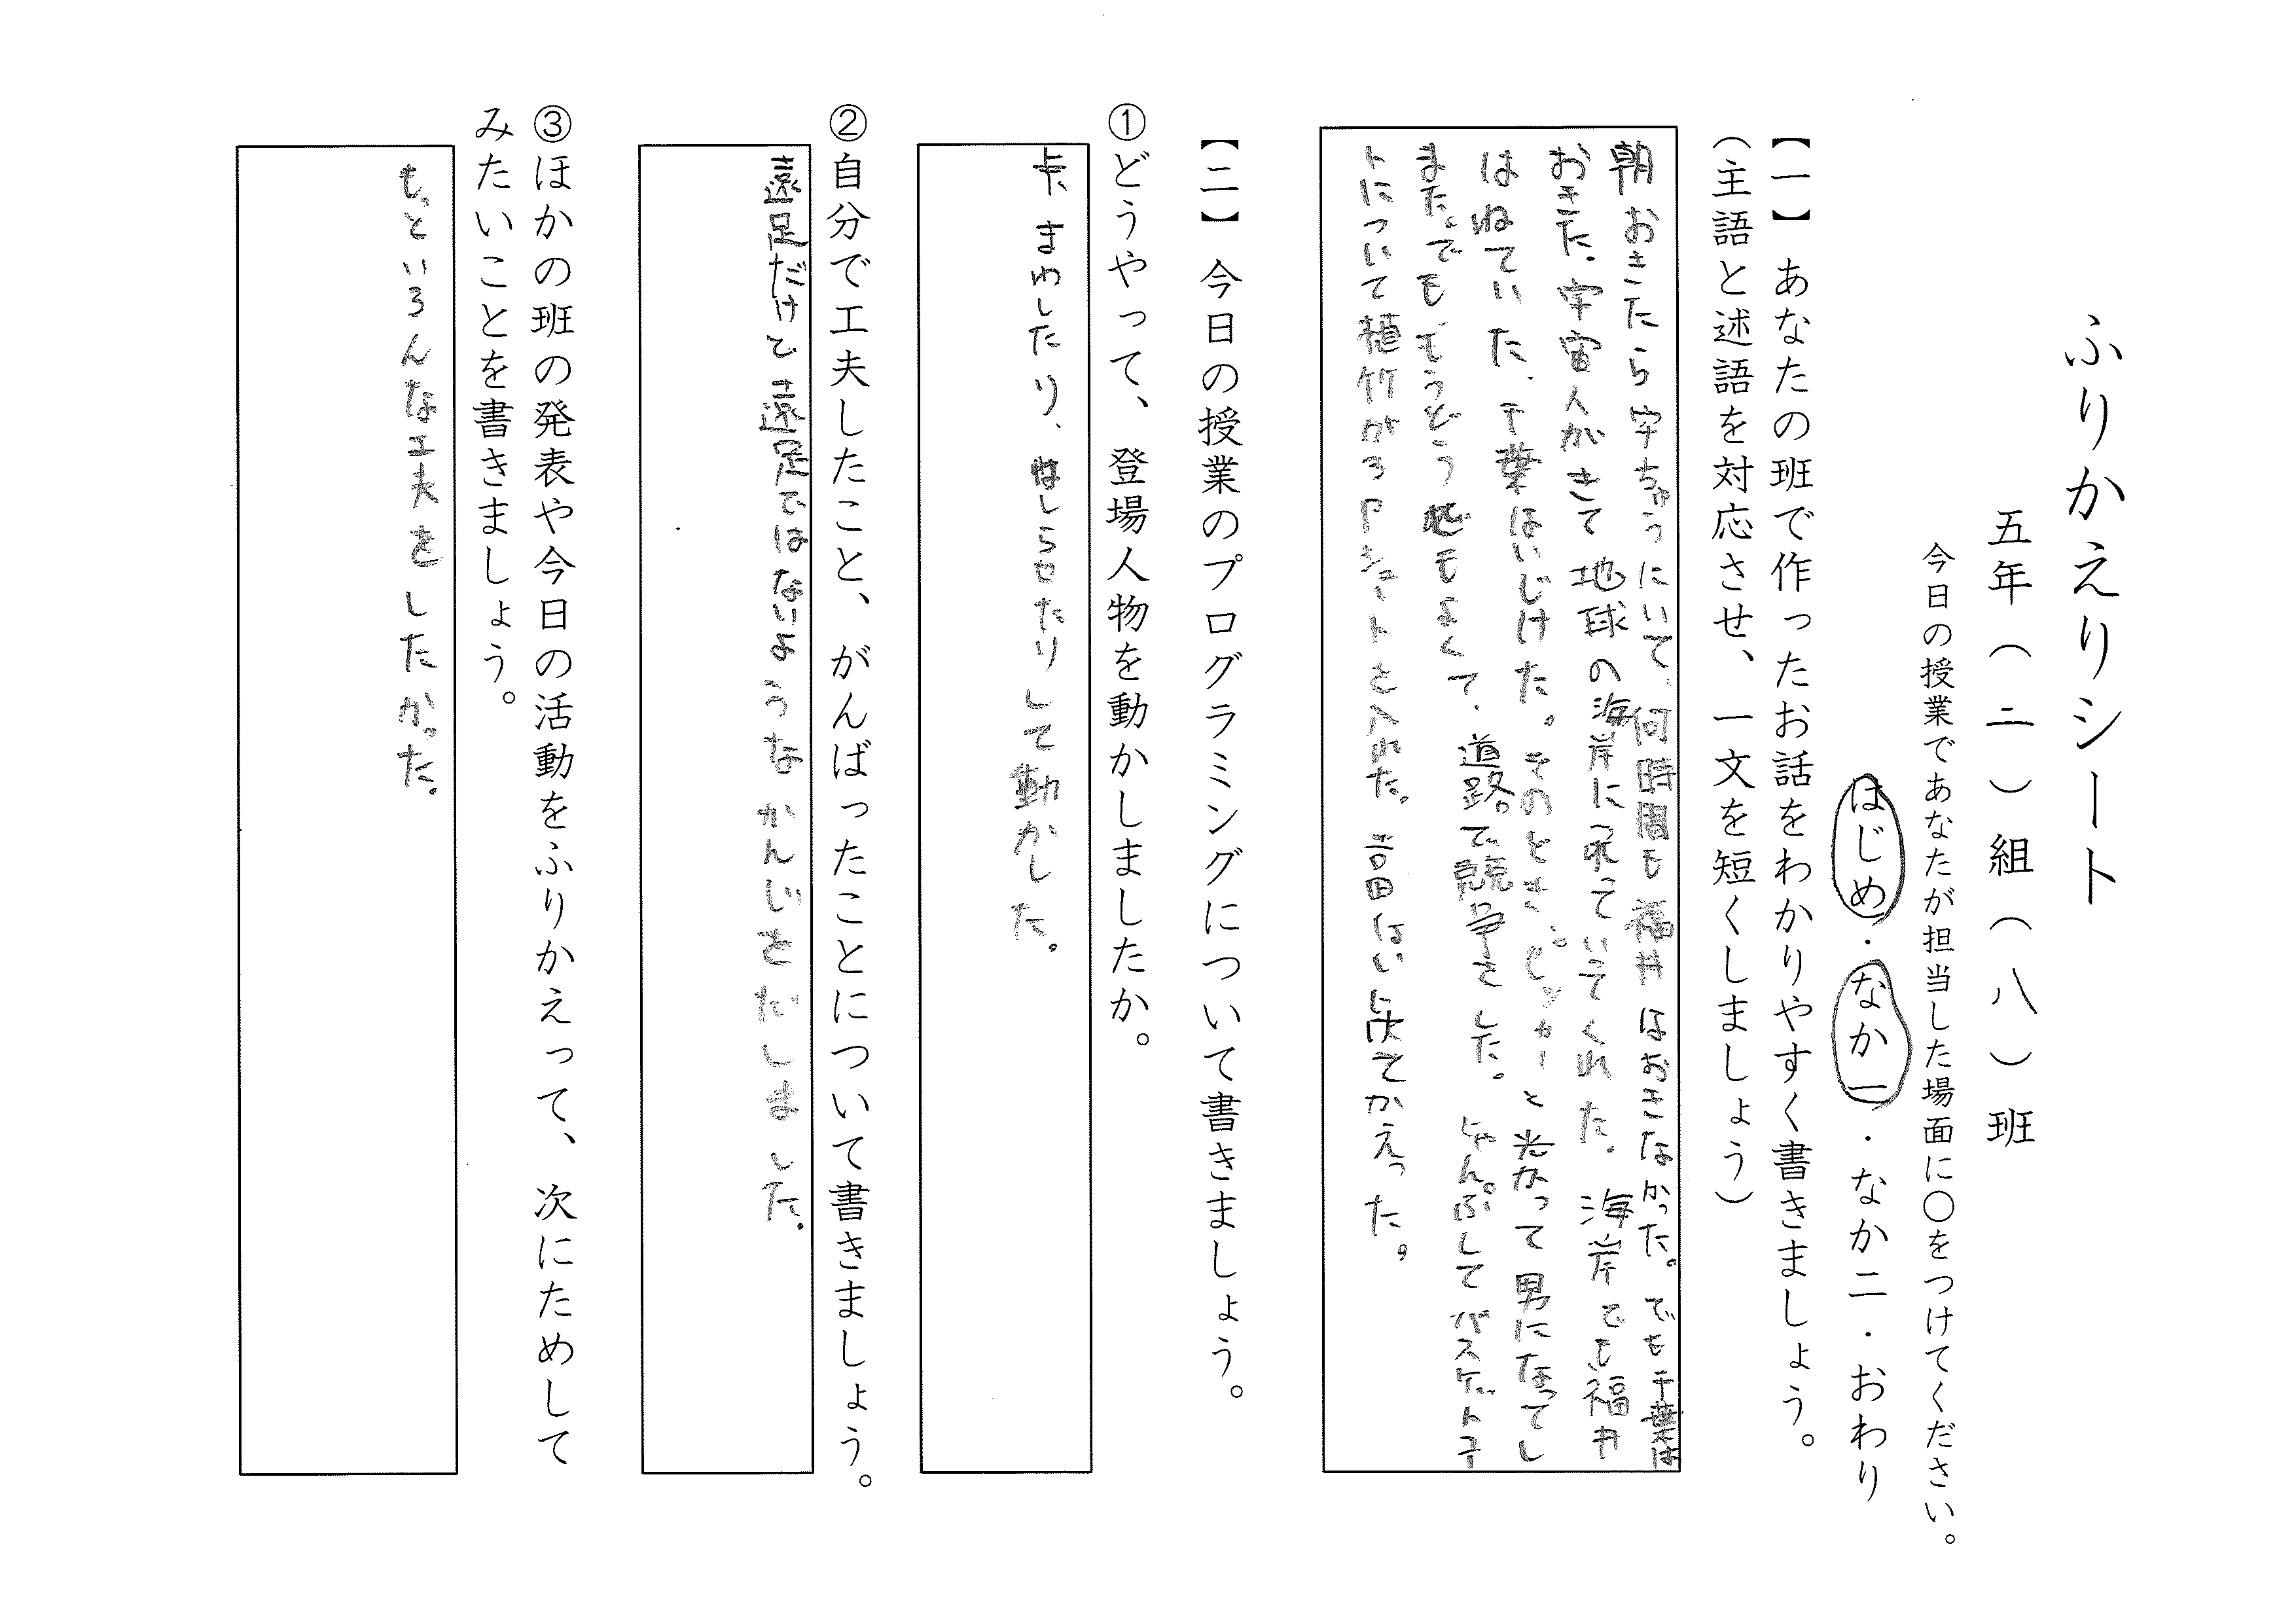 ふりかえりシート
五年（二）組（八）班
今日の授業であなたが担当した場面に〇をつけてください。
はじめ・なか一・なか二・おわり
【一】あなたの班で作ったお話をわかりやすく書きましょう。
（主語と述語を対応させ、一文を短くしましょう）
朝おきたら宇ちゅうにいて、何時間も福井はおきなかった。でも千葉は
おきた。宇宙人がきて地球の海岸につれていってくれた。海岸でも福井
はねていた、千葉はいじけた。そのとき、ピッカーと光かって男になってし
また。でももうどうでもよくて、道路で競争をした。じゃんぷしてバスケットコ
トについて植竹が3Pシュートを入れた。吉田はい えてかえった。
【二】今日の授業のプログラミングについて書きましょう。
①どうやって、登場人物を動かしましたか。
まわしたり、はしらせたりして動かした。
②自分で工夫したこと、がんばったことについて書きましょう。
遠足だけど遠足ではないようなかんじをだしました。
③ほかの班の発表や今日の活動をふりかえって、次にためして
みたいことを書きましょう。
もっといろんな工夫をしたかった。